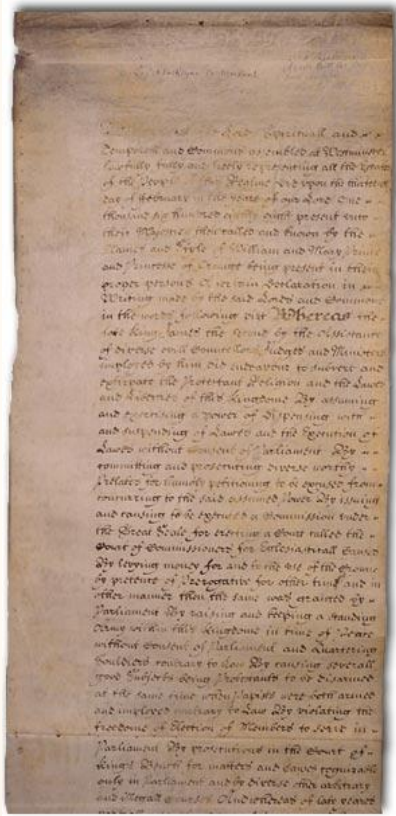 Lords Spirituall and
Temporall and Commons assembled at Westminster
lawfully fully and freely representing all the Estates
of the People of this Realme did upon the thirteenth
day of February in the yeare of our Lord One
thousand six hundred eighty eight present unto
their Majesties then called and known by the
Names and Style of William and Mary Prince
and Princesse of Orange being present in their
proper Persons A certain Declaration in
Writing made by the said Lords and Commons
in the words following viz Whereas the
late King James the Second by the Assistance
of diverse evill Councellors Judges and Ministers
imployed by him did endeavour to subvert and
extirpate the Protestant Religion and the Lawes
and Liberties of this Kingdome By assuming
and exercising a power of Dispensing with
and suspending of Lawes and the Execution of
Lawes without Consent of Parliament By
committing and prosecuting diverse worthy
Prelates for humbly petitioning to be excused from
concurring to the said assumed Power By issuing
and causing to be executed a Commission under
the Great Seale for erecting a Court called the
Court of Commissioners for Ecclesiasticall Causes
By levying money for and to the use of the Crowne
by pretence of Prerogative for other time and in
other manner then the same was granted by
Parliament By raising and keeping a standing
Army within this Kingdome in time of Peace
without Consent of Parliament and Quartering
Souldiers contrary to Law By causing severall
good Subjects being Protestants to be disarmed
at the same time when Papists were both armed
and imployed contrary to Law By violating the
freedome of Election of Members to serve in
Parliament By prosecutions in the Court of
Kings Bench for matters and causes cognizable
only in Parliament and by diverse other arbitrary
and illegall courses And whereas of late yeares